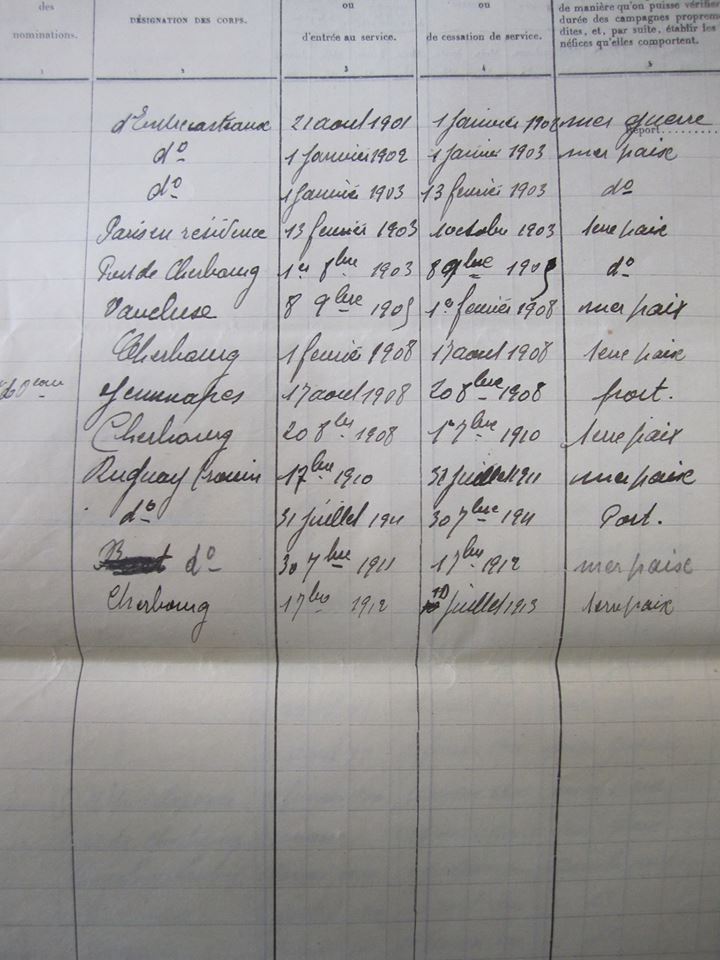 des
nominations.
DÉSIGNATION DES CORPS.
ou
d'entrée au service.
ou
de cessation de service.
de manière qu'on puisse vérifier
durée des campagnes proprem
dites, et, par suite, établir les
néfices qu'elles comportent.
1 2 3 4 5
Report..........
d'Entrecasteaux 21 aout 1901 1 Janvier 1902 mer guerre
d° 1 Janvier 1902 1 Janvier 1903 mer paix
d° 1 Janvier 1903 13 fevrier 1903 d°
Paris en résidence 13 fevrier 1903 1 octobre 1903 terre paix
Port de Cherbourg 1er 8bre 1903 8 9bre 1905 d°
Vaucluse 8 9bre 1905 1er fevrier 1908 mer paix
Cherbourg 1 fevrier 1908 17 aout 1908 terre paix
Jemmapes 17 aout 1908 20 8bre 1908 port.
Cherbourg 20 8bre 1908 1er 7bre 1910 terre paix
Duguay Trouin 1 7bre 1910 31 juillet 1911 mer paix
d° 31 juillet 1911 30 7bre 1911 Port.
d° 30 7bre 1911 1 7bre 1912 mer paix
Cherbourg 1 7bre 1912 juillet 1913 terre paix